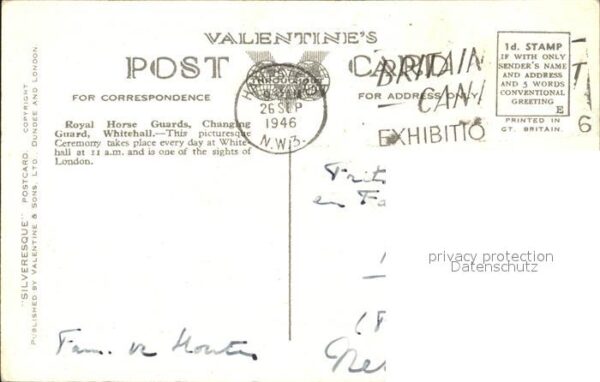 VALENTINE'S
POST CARD
FOR CORRESPONDENCE
FOR ADDRESS ONLY
1d. STAMP
IF WITH ONLY
SENDER'S NAME
AND ADDRESS
AND 5 WORDS
CONVENTIONAL
GREETING
E
PRINTED IN
GT. BRITAIN.
26 SEP
1946
N.W.3.
BRITAIN
CAN
EXHIBITIO
6
Royal Horse Guards, Changing
Guard, Whitehall.—This picturesque
Ceremony takes place every day at White-
hall at 11 a.m. and is one of the sights of
London.
"SILVERESQUE" POSTCARD. COPYRIGHT
PUBLISHED BY VALENTINE & SONS, LTD. DUNDEE AND LONDON.
privacy protection
Datenschutz
Fam.